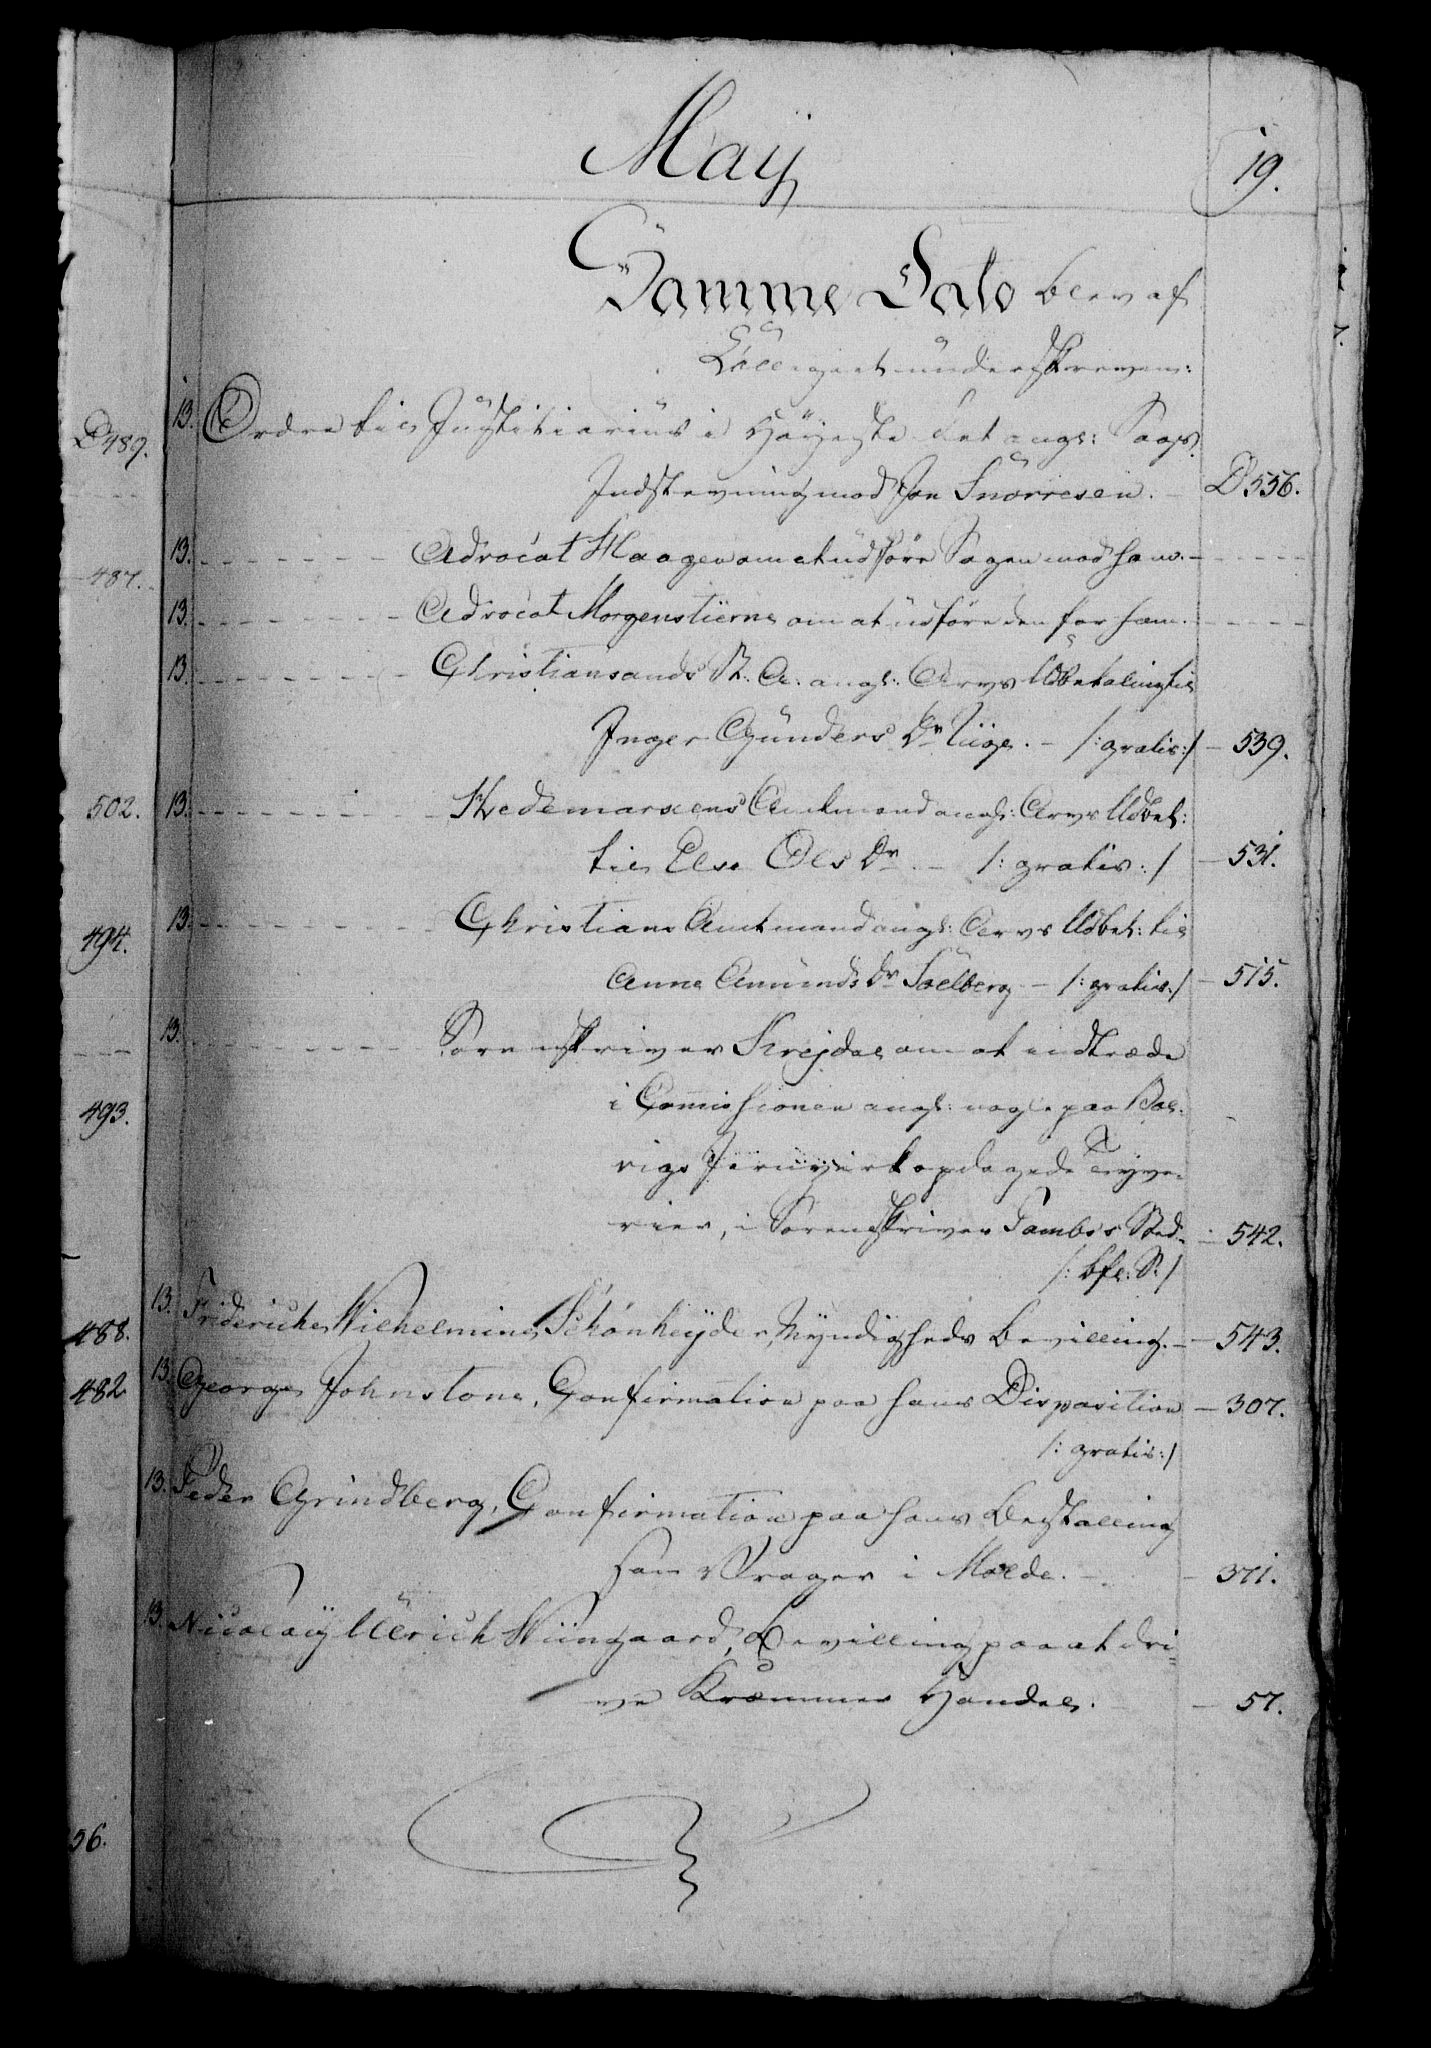 Maÿ
19.
Samme Dato blev af
Collegiet underskreven:
13. Ordre til Justitiarius i Høyeste Ret angl: Sags
Indstevning mod Jon Snorresen. - D 556.
13. - - - Advocat Haagen om at udføre Sagen mod ham. - - -
13. - - - Advocat Morgenstierne om at udføre den for ham. - - -
13. - - - Christiansands St. A: angl: Arvs Udbetaling til
Inger Gunders Dr - /: gratis :/ - 539.
13. - - - Hedemarkens Amtmand angl: Arvs Udbet:
til Else Ols Dr - /: gratis :/ - 531.
13. - - - Christians Amtmand angl: Arvs Udbet: til
Anne Amunds Dr Sølberg - /: gratis :/ - 515.
13. - - - Sorenskriver Krejdal om at indtræde
i Commissionen angl: nogle paa Bol-
vigs Jernverk opdagede Tyve-
rier, i Sorenskriver Tambs's Sted - 542.
/: bfl: S: /
13. Fridericha Wilhelmina Schønheyder, Myndigheds Bevilling. - 543.
13. George Johnstone, Confirmation paa hans Disposition - 307.
/: gratis :/
13. Peder Grindberg, Confirmation paa hans Bestalling
som Vrager i Molde. - 371.
13. Nicolaiÿ Ulrich Wiingaard, Bevilling paa at dri-
ve Kræmmer Handel. - 57.
D 489.
487.
502.
494.
493.
488.
482
56.